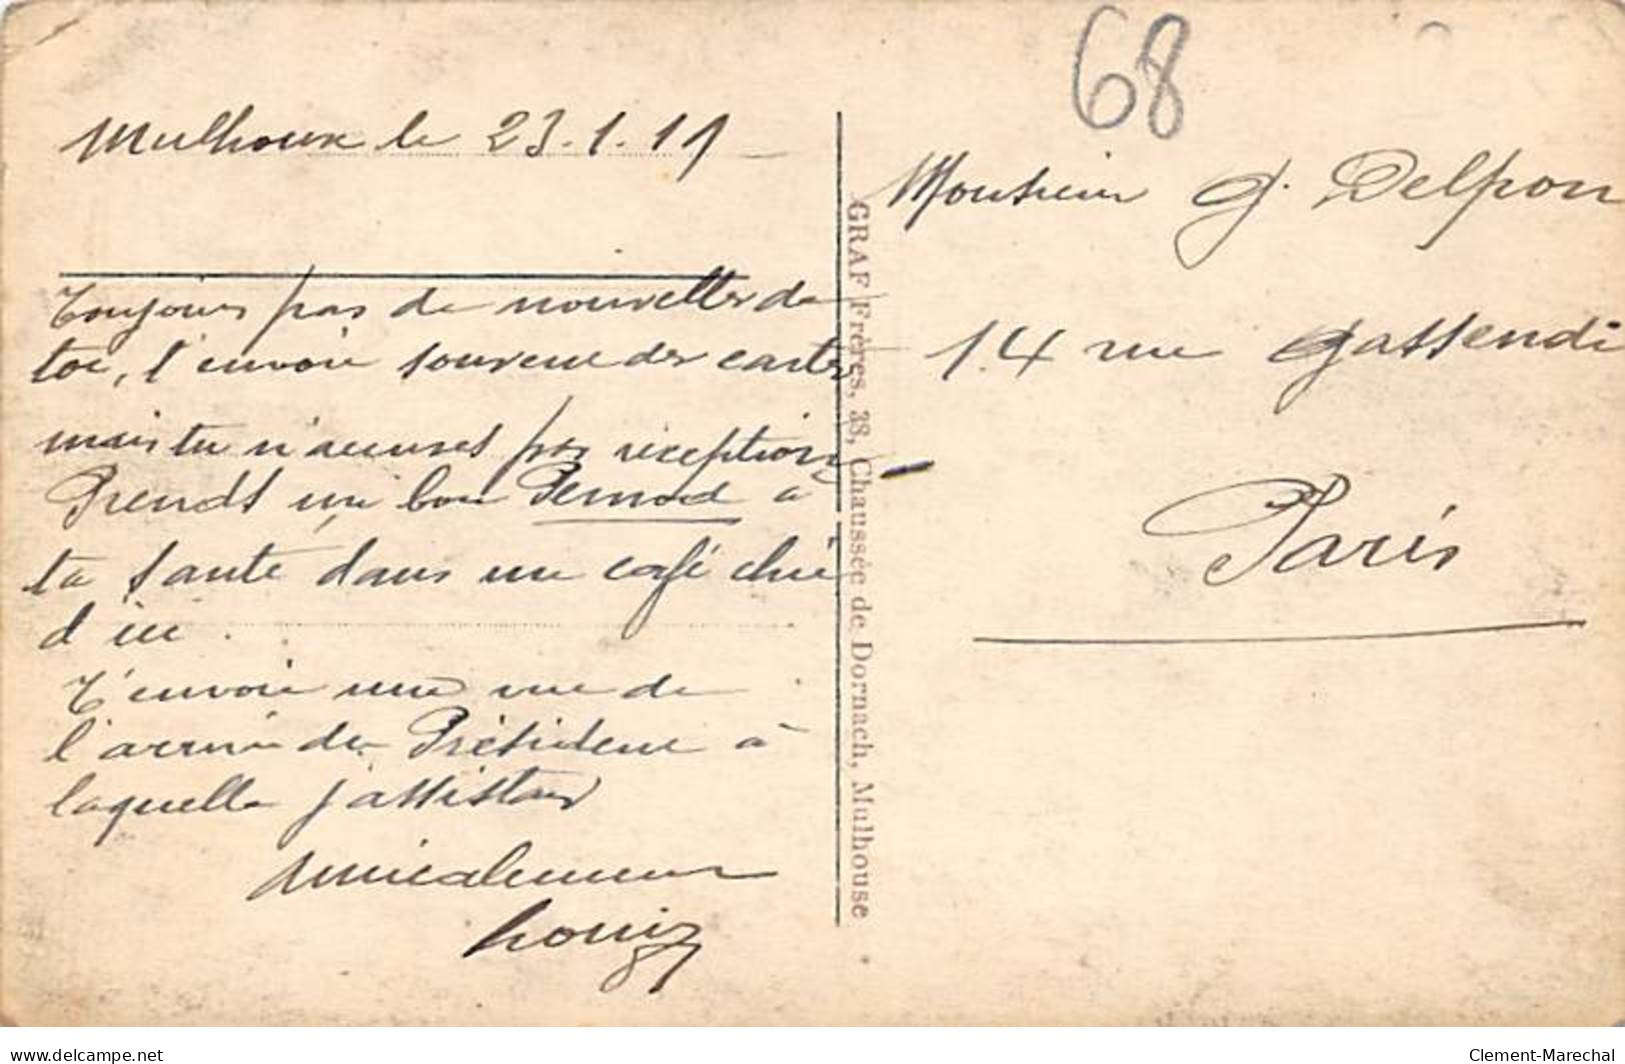 68
Mulhouse le 23.1.19
Toujours pas de nouvelles de
toi, t'envoie souvent des cartes
mais tu n'accuses pas réception
Prends un bon Pernod à
ta santé dans un café chic
d'ici.
T'envoie une vue de
l'arrivée du Président à
laquelle j'assistais
Amicalement
Louis
GRAF Frères, 38, Chaussée de Dornach, Mulhouse
Monsieur G. Delpon
14 rue Gassendi
Paris
delcampe.net
Clement-Marechal